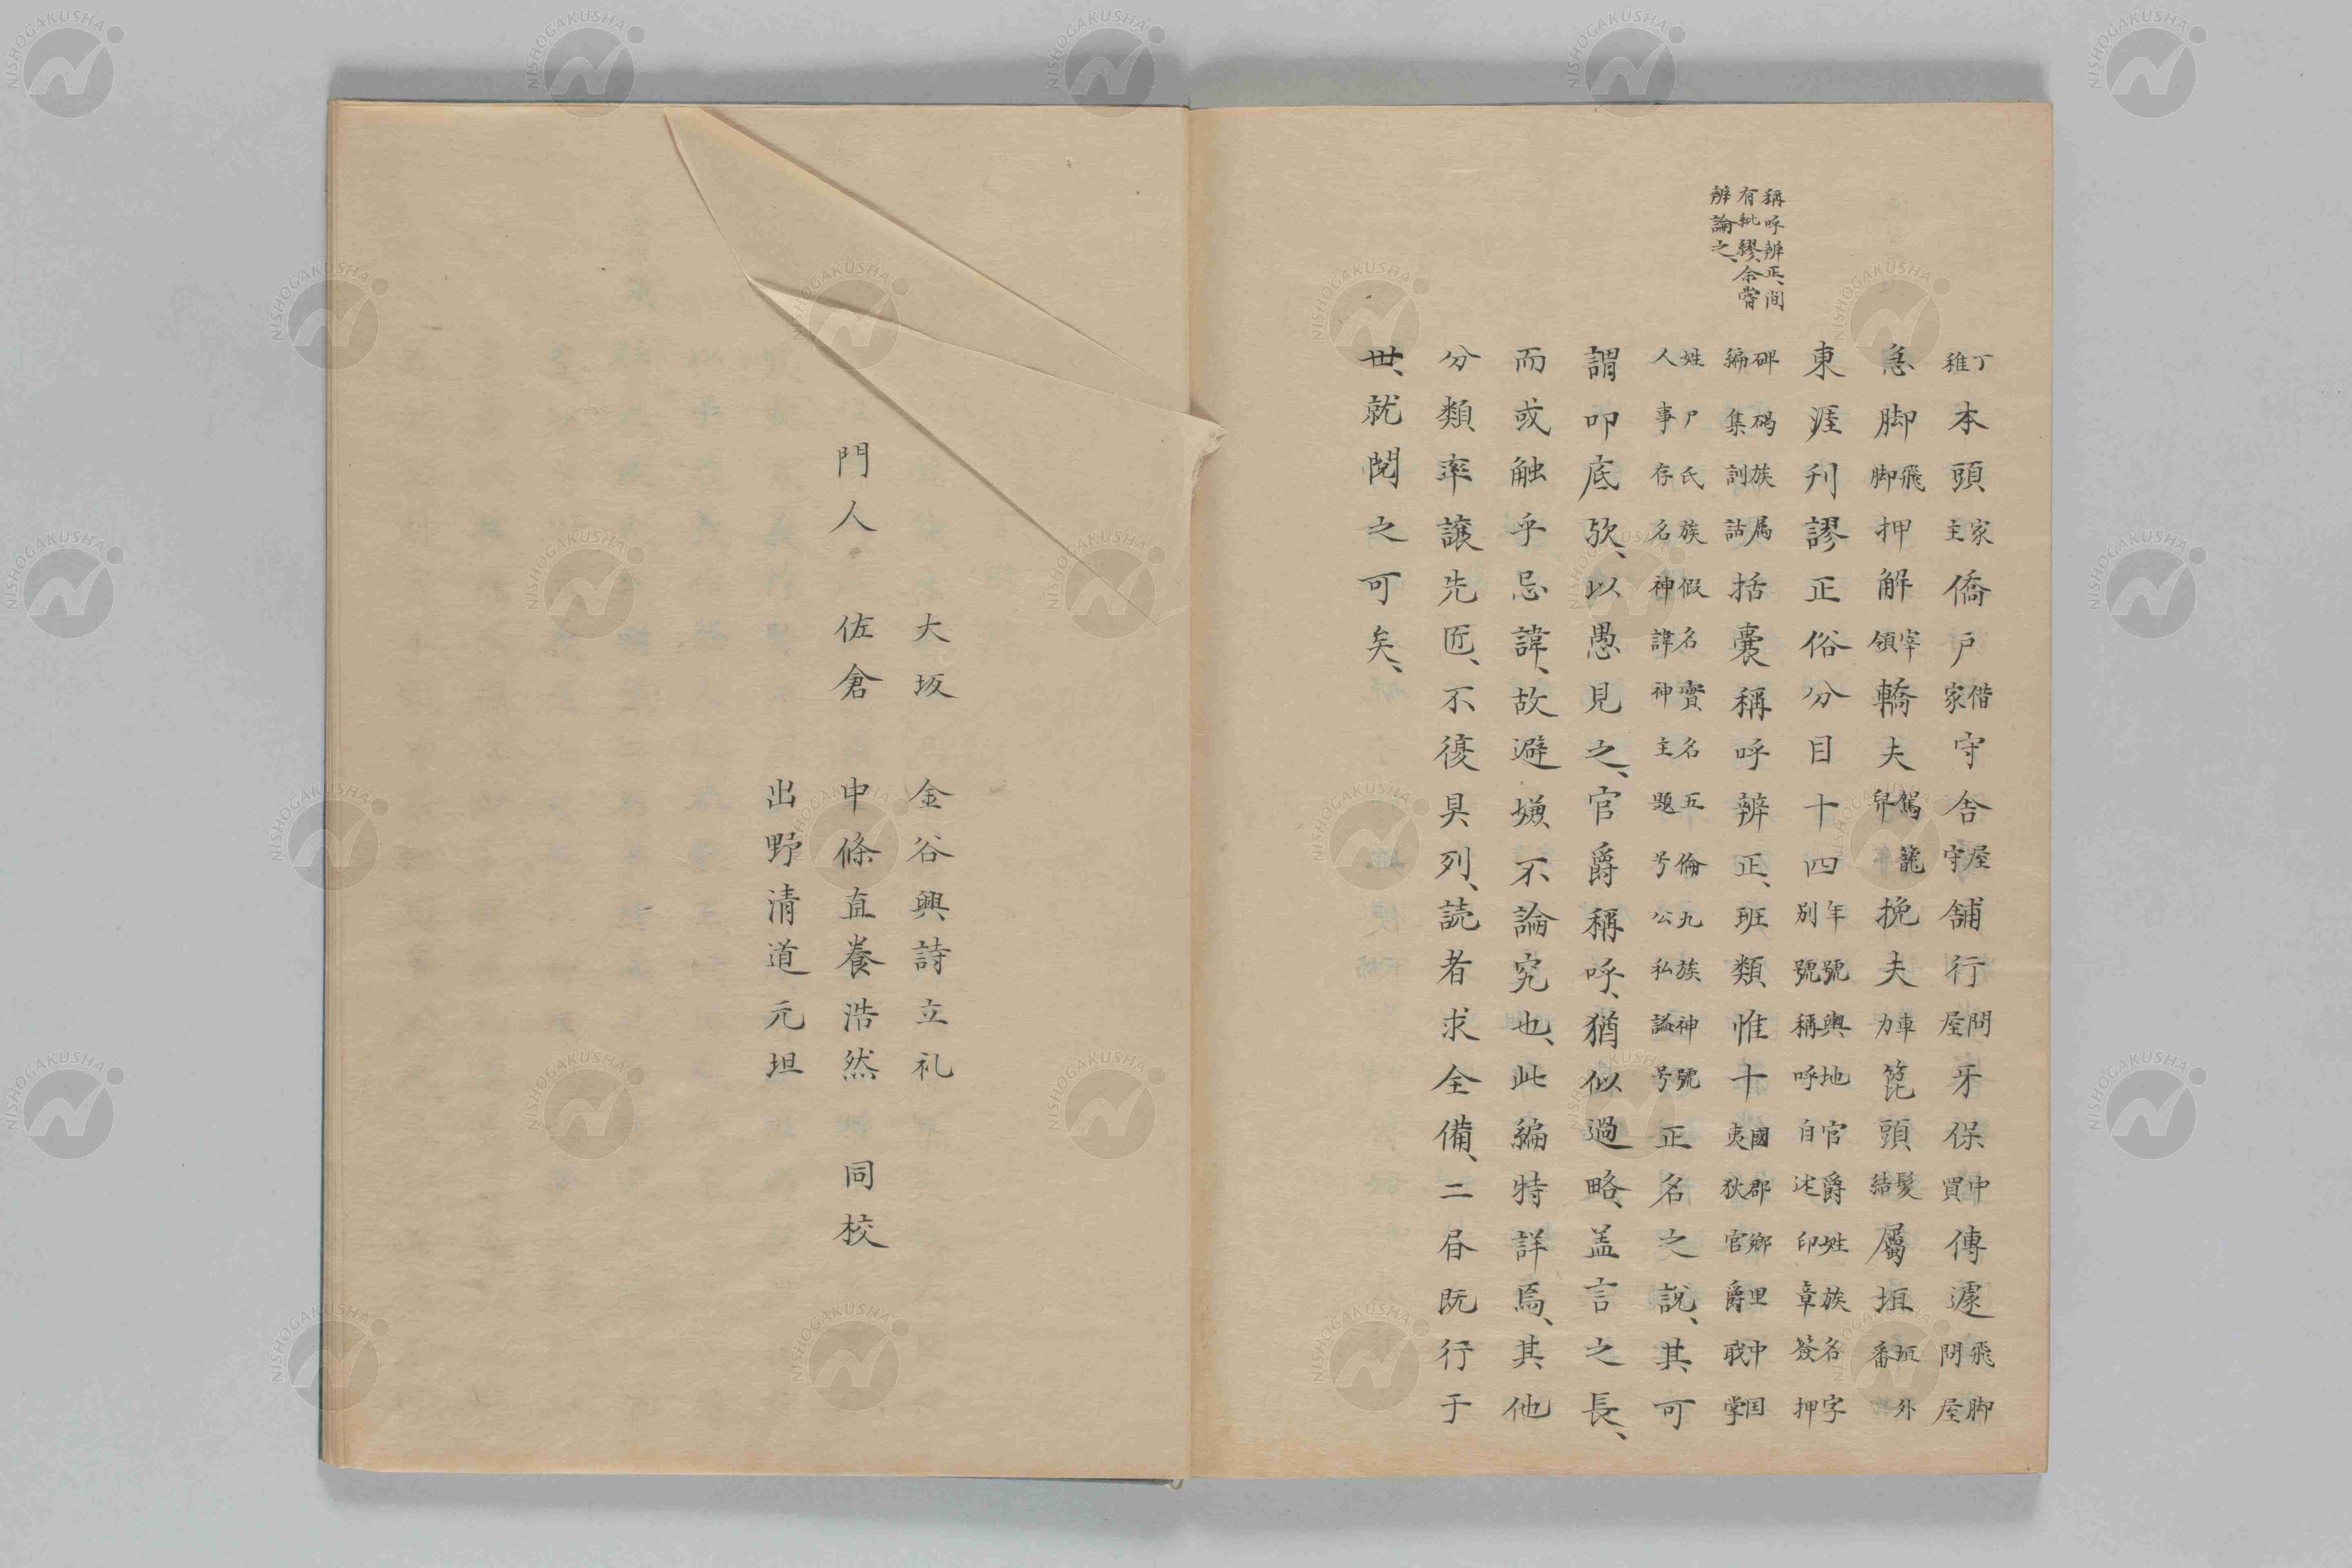 稱呼辨正、間
有紕繆、余嘗
辨論之、
丁稚本頭家主僑戸借家守舎屋守舗行問屋牙保中買傳遽飛脚問屋
急脚飛脚押解宰領轎夫駕籠舁挽夫車力箆頭髪結屬垣垣外番
東涯刊謬正俗分目十四年號輿地官爵姓族名字別號稱呼自述印章簽押
碑碣族属編集訓詁括嚢稱呼辨正、班類惟十國郡郷里中国夷狄官爵戝掌
姓尸氏族假名實名五倫九族神號人事存名神諱神主題号公私謚号正名之説、其可
謂叩底欤、以愚見之、官爵稱呼、猶似過略、盖言之長、
而或触乎忌諱、故避嫌不論究也、此編特詳焉、其他
分類率讓先匠、不復具列、読者求全備、二既行于
世、就閲之可矣、
大坂 金谷興詩立礼
門人 佐倉 中條直養浩然 同校
出野清道元坦